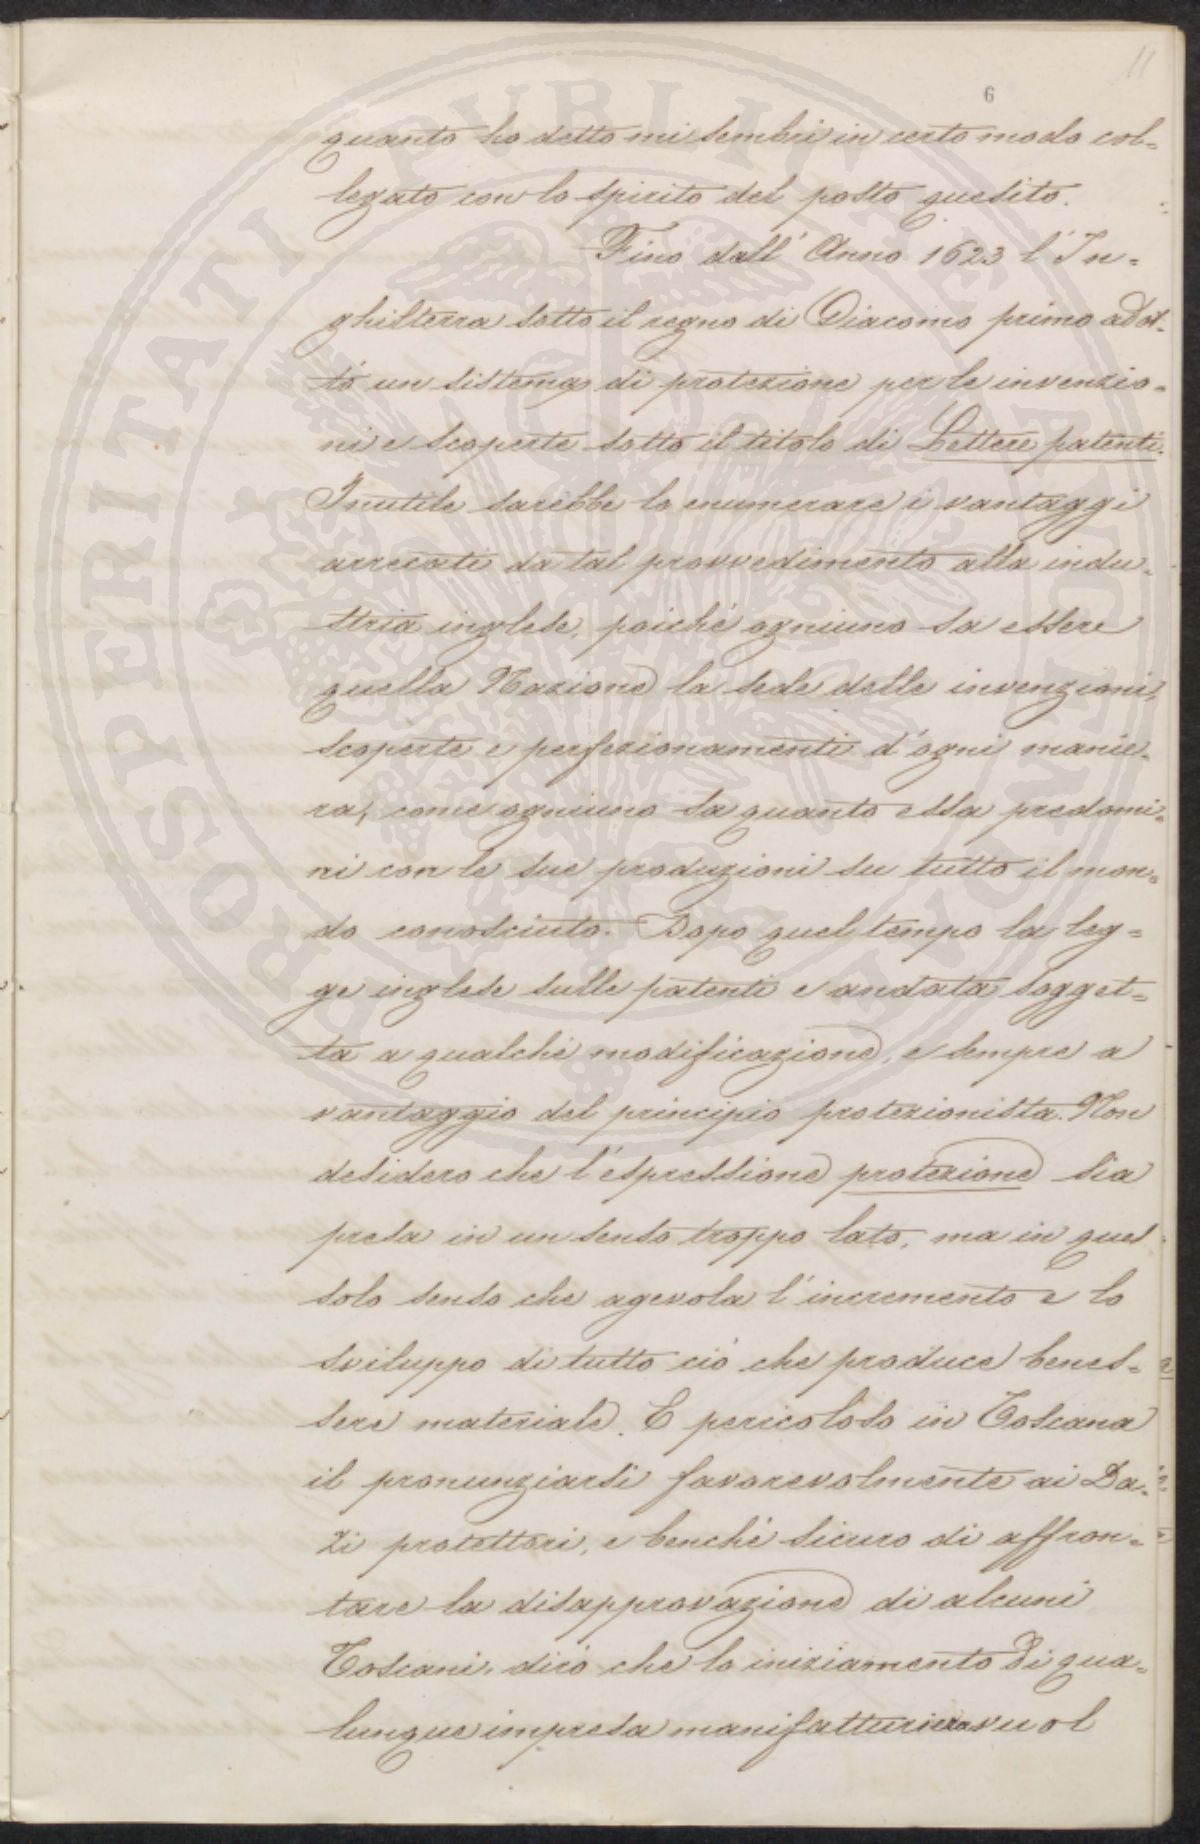 11
6
quanto ho detto mi sembri in certo modo col-
legato con lo spirito del posto quesito.
Fino dall' Anno 1623 l'In-
ghilterra sotto il regno di Giacomo primo adot-
tò un sistema di protezione per le invenzio-
ni e scoperte sotto il titolo di Lettere patenti.
Inutile sarebbe lo enumerare i vantaggi
arrecati da tal provvedimento alla indu-
stria inglese, poichè ogniuno sa essere
quella Nazione la sede delle invenzioni,
scoperte e perfezionamenti d'ogni manie-
ra, come ogniuno sa quanto essa predomi-
ni con le sue produzioni su tutto il mon-
do conosciuto. Dopo quel tempo la leg-
ge inglese sulle patenti è andata sogget-
ta a qualche modificazione, e sempre a
vantaggio del principio protezionista. Non
desidero che l'espressione protezione sia
presa in un senso troppo lato, ma in quel
solo senso che agevola l'incremento e lo
sviluppo di tutto ciò che produce benes-
sere materiale. E pericoloso in Toscana
il pronunziarsi favorevolmente ai Da-
zi protettori, e benchè sicuro di affron-
tare la disapprovazione di alcuni
Toscani, dirò che lo iniziamento di qua-
lunque impresa manifatturiera vuol
PROSPERITATI PVBLICAE AVGENDAE